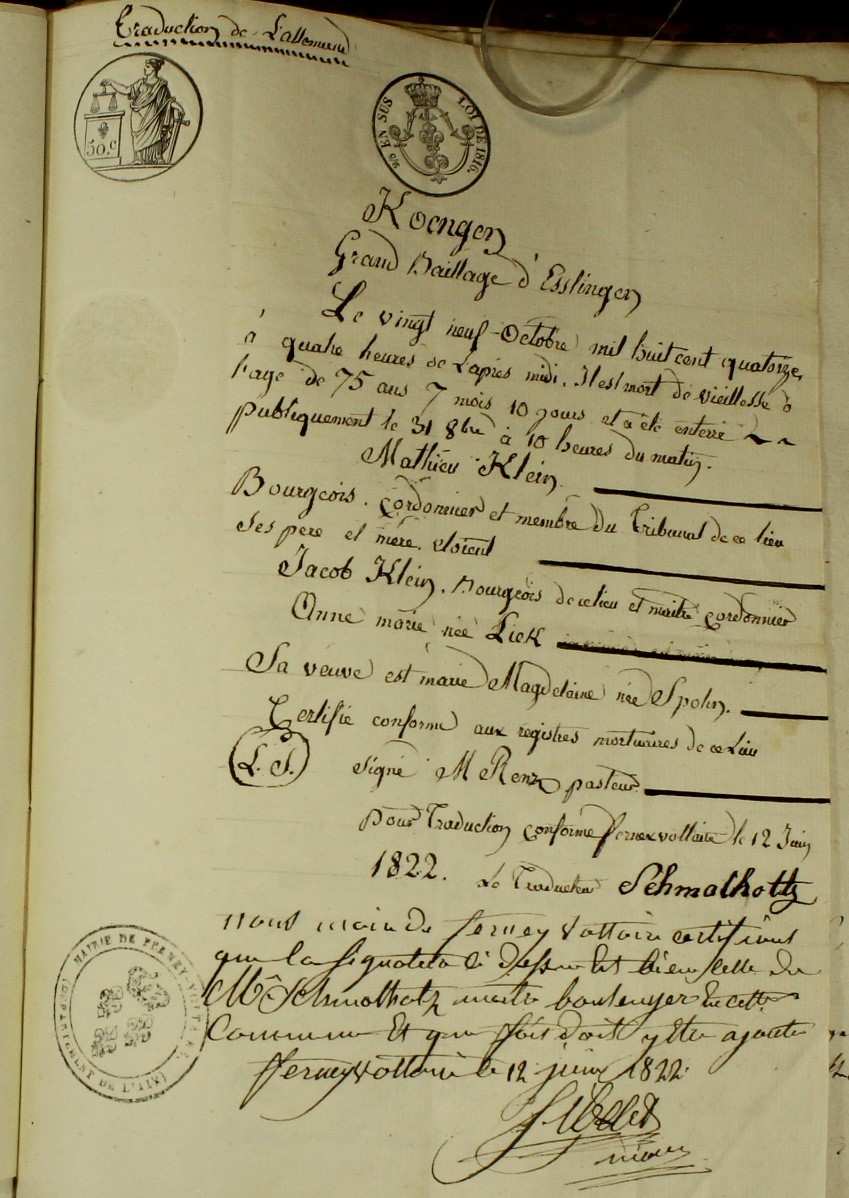 Traduction de L'allemand
50.c
25 EN SUS LOI DE 1816.
Koengen
Grand Baillage d'Esslingen
Le vingt neuf Octobre mil huit cent quatorze,
à quatre heures de Lapres midi. Il est mort de vieillesse à
l'age de 75 ans 7 mois 10 jours et a été enterré
publiquement le 31 8bre à 10 heures du matin.
Mathieu Klein.
Bourgeois. Cordonnier et membre du Tribunal de ce lieu
Ses pere et mere. etoient
Jacob Klein. Bourgeois de ce lieu et maitre Cordonnier
Anne marie née Liek
Sa veuve est marie Magdelaine née Spohn.
Certifié conforme aux registres mortuaires de ce Lieu
(L. S.) signé M Renz pasteur.
Pour Traduction conforme fernex voltaire le 12 Juin
1822. Le Traducteur Schmalholtz
nous maire de ferney Voltaire certifions
que la signature ci dessus Est bien celle de
Mr Schmolholz maitre boulenger En cette
Commune Et que fois doit y Etre ajoutée
ferney voltaire le 12 juin 1822.
maire
MAIRIE DE FERNEY-VOLTAIRE
(DEPARTEMENT DE L'AIN)